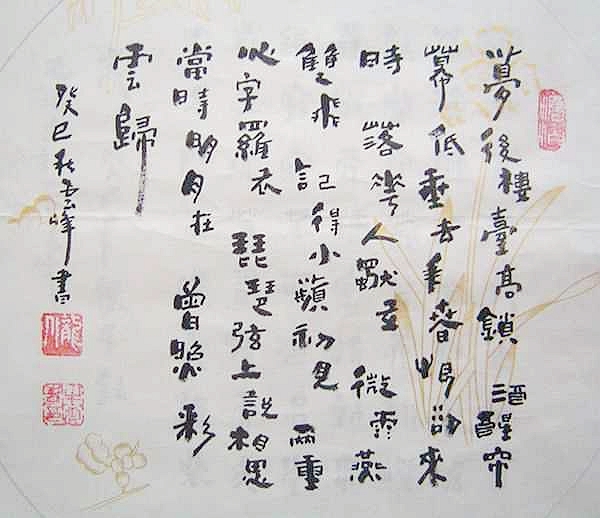 夢後樓臺高鎖 酒醒帘
幕低垂去年春恨卻來
時 落花人獨立 微雨燕
雙飛 記得小蘋初見 兩重
心字羅衣 琵琶弦上說相思
當時明月在 曾照彩
雲歸
癸巳秋峰書